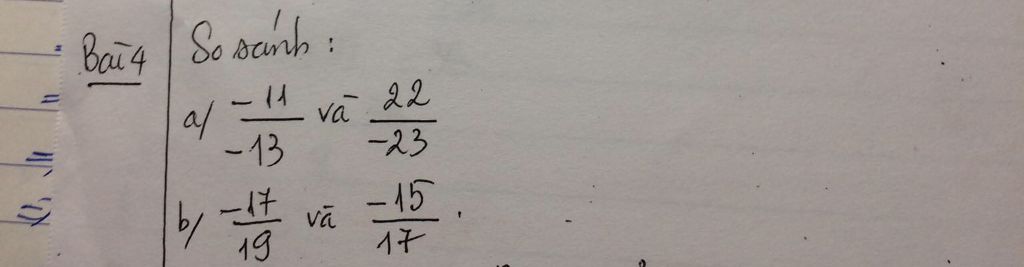 Bài 4
So sánh :
a/ -11/-13 và 22/-23
b/ -17/19 và -15/17 .